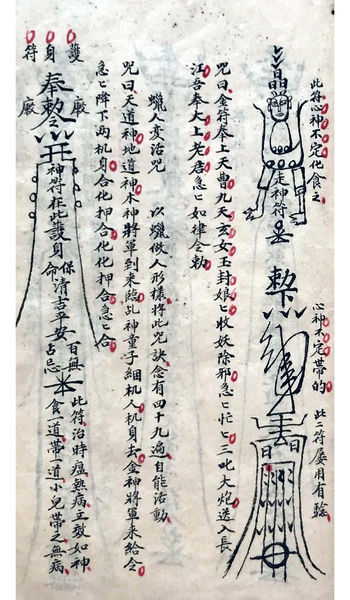 此符心神不定化食之
走神符
心神不定帶的
此二符屡用有驗
敕下
咒曰金符奉上天曹九天玄女玉封娘匕收妖除邪急匕忙匕三叱大炮送入長
江吾奉太上老君急匕如律令勅
蠟人変活咒 以蠟做人形樣将此咒訣念有四十九遍自能活動
咒曰天道神地道神木神將軍到来臨乩神童子綑机人机身去金神將軍来給令
急匕降下两机身合化押合化化押合急匕合
護身符
奉敕令
廠 廠
神符在此護身
保命清吉平安
百無占忌
此符治時瘟熱病工效如神
食一道帶一道小兒帶之無病